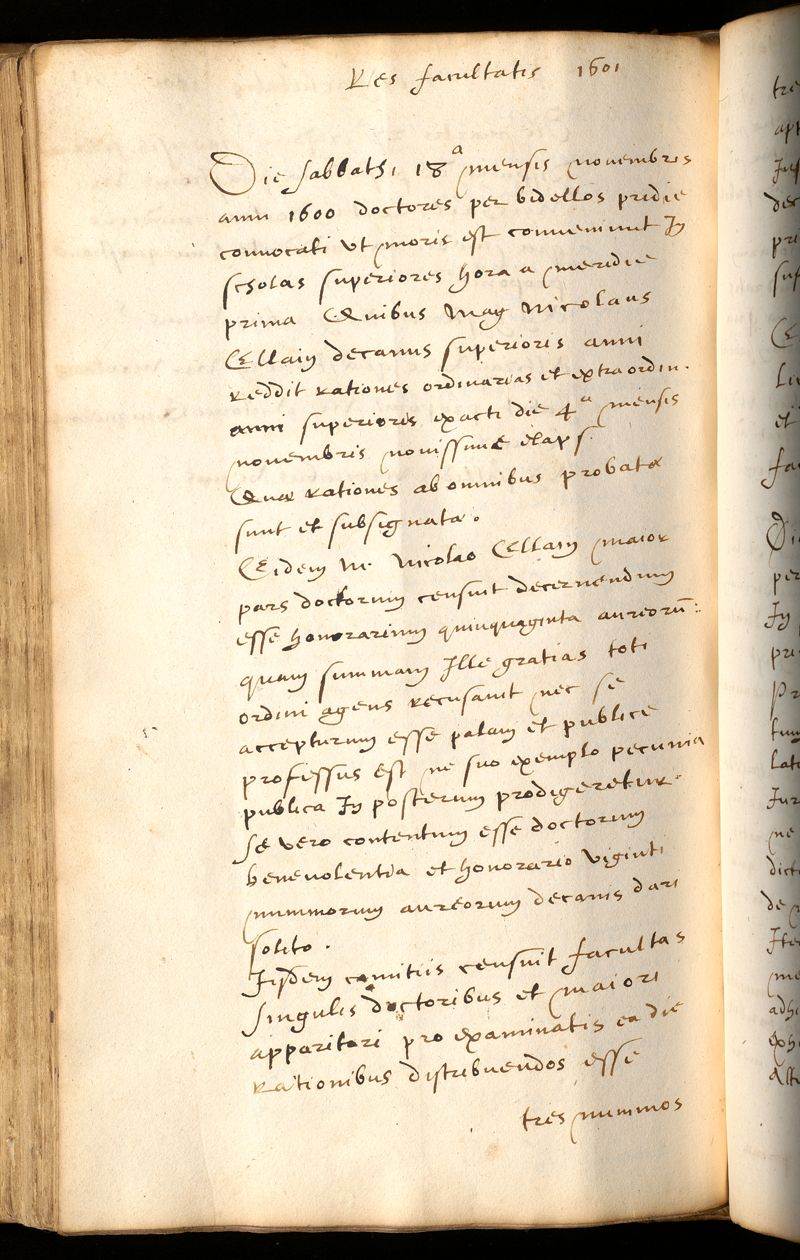 Res facultatis 1601
Die sabbathi 18ª mensis novembris
anni 1600 doctores per bidellos pridie
convocati ut moris est convenirunt In
scholas superiores hora a meridie
prima Quibus Mag Nicolaus
Ellain decanus superioris anni
reddit rationes ordinarias et extraordin.
anni superioris exacti die 4ª mensis
novembris novissime elaps.
Quæ rationes ab omnibus probatæ
sunt et subsignatæ.
Eidem M. Nicolao Ellain maior
pars doctorum censuit decernendum
esse honorarium quinquaginta aureorū:
quam summam Ille gratias toti
ordini agens recusavit nec se
accepturum esse palam et publice
professus est ne suo exemplo pecunia
publica In posterum prodigeretur.
Se vero contentum esse doctorum
benevolentia et honorario viginti
nummorum aureorum decanis dari
solito.
Iisdem comitiis censuit facultas
singulis doctoribus et maiori
apparitori pro examinatis ea die
rationibus distribuendos esse
tres nummos
tre
app
dec
pri
suf
et
fa
per
In
pri
Pr
tum
lat
Iur
ne
dict
de
Ite
me
adhi
exhi